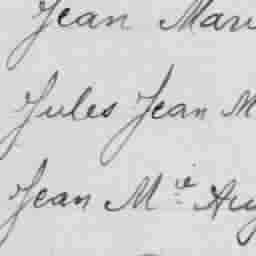 Jean Mari
Jules Jean M
Jean M.ie Aug